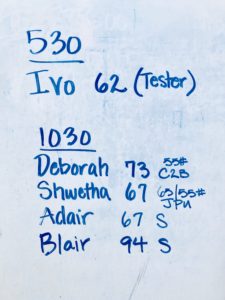 530
Ivo 62 (Tester)
1030
Deborah 73 55# C2B
Shwetha 67 65/55# JPU
Adair 67 S
Blair 94 S